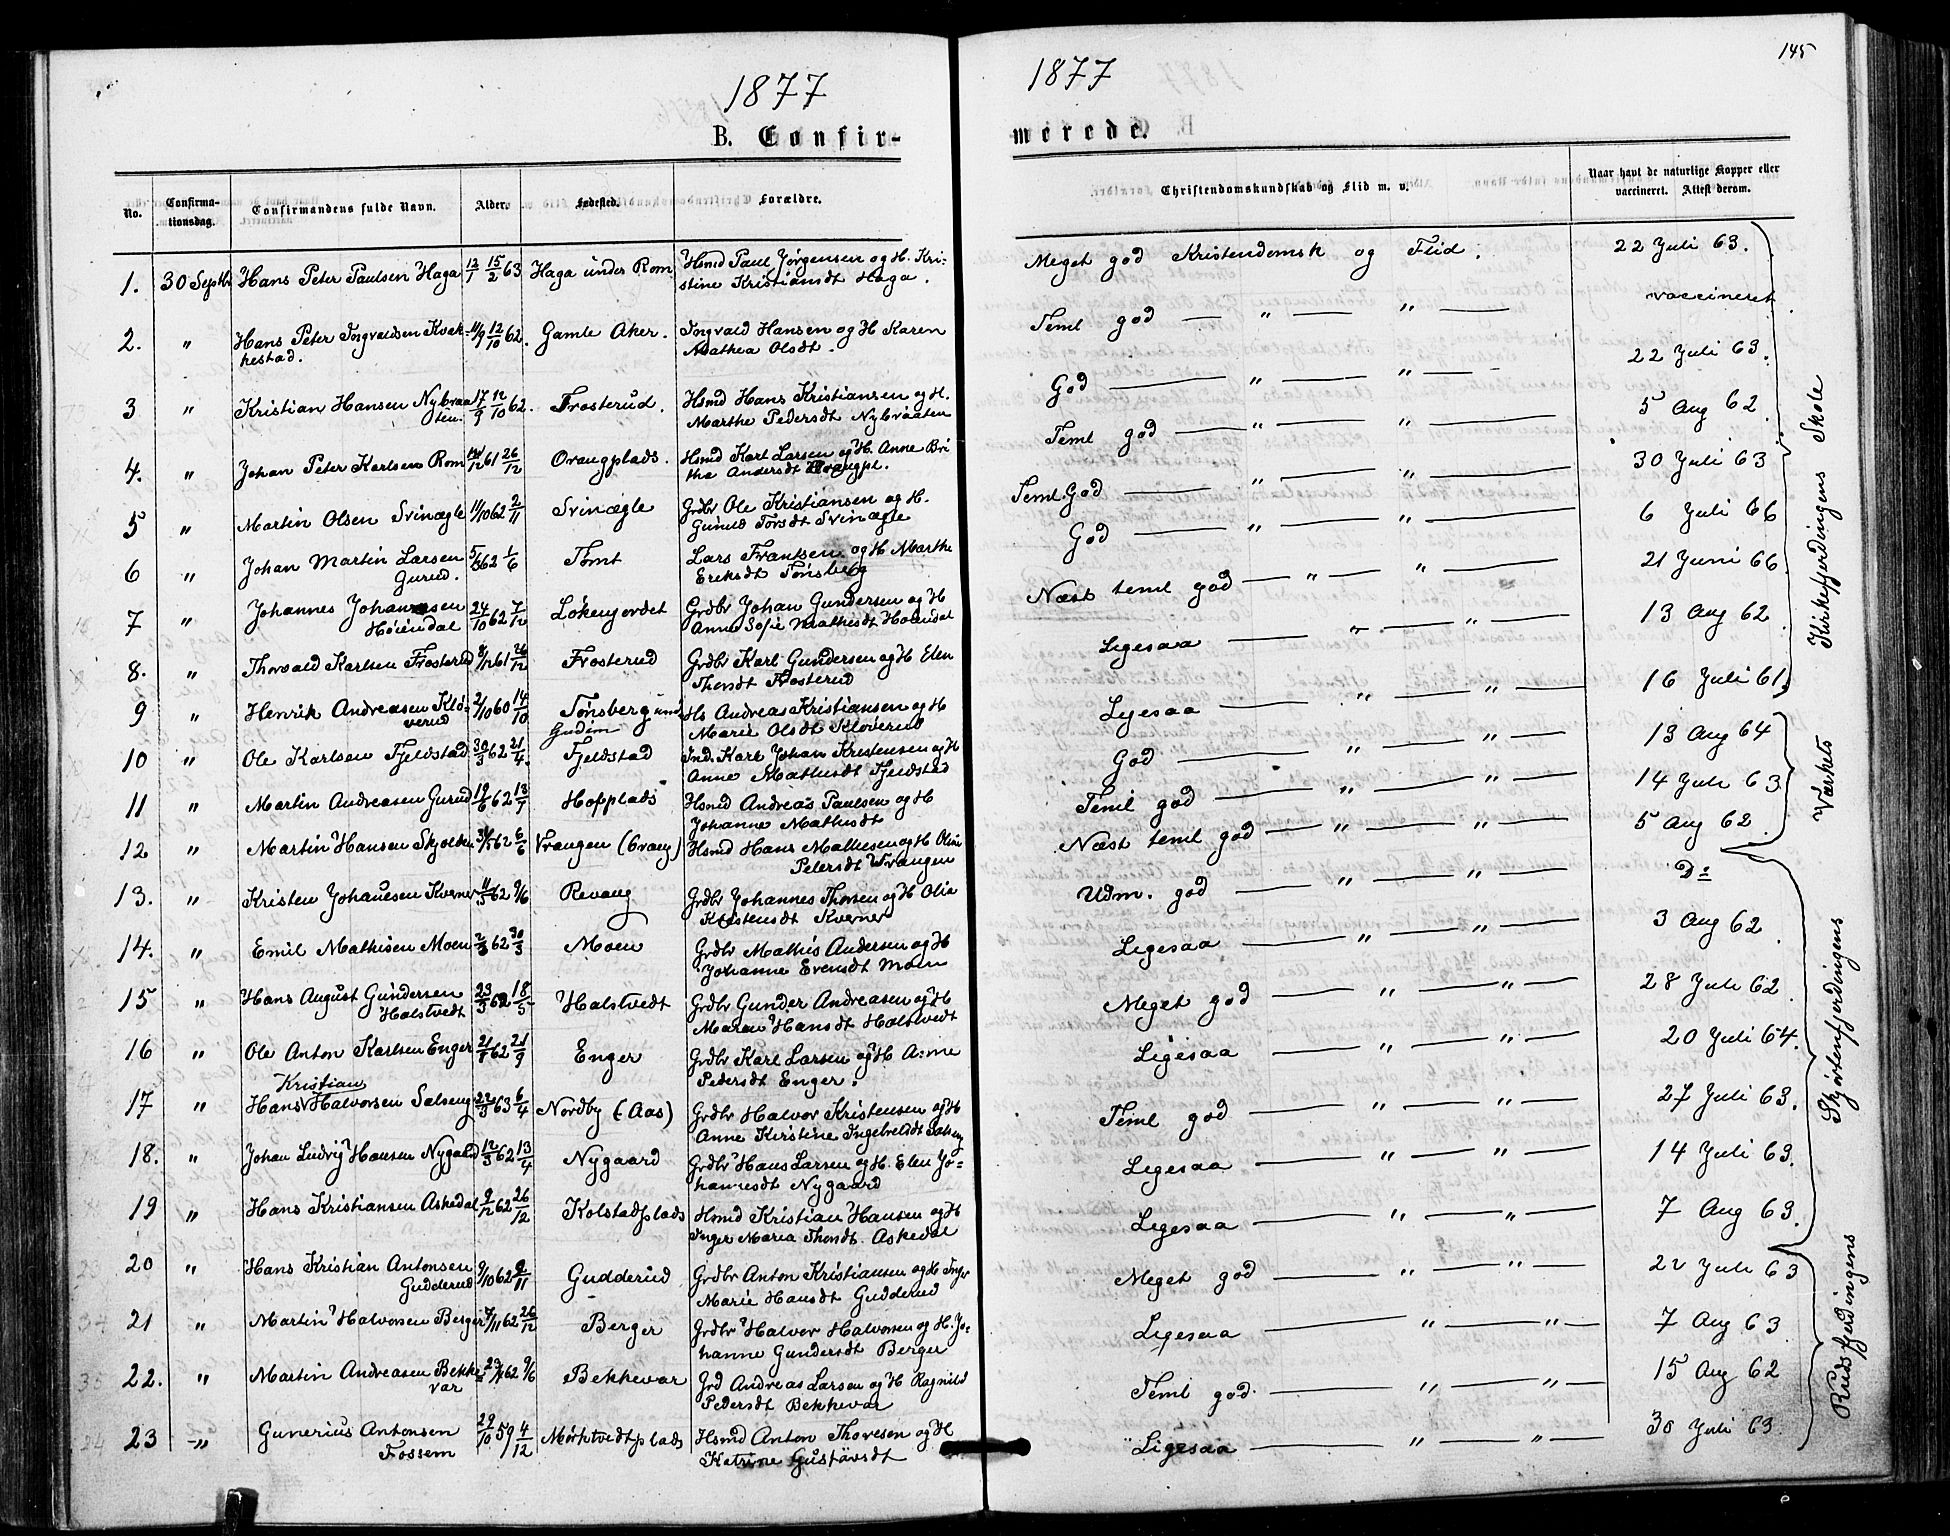 1877
B. Confir-
No.
Confirma-
tionsdag.
Confirmandens fulde Navn.
Alder.
Fødested.
Forældre.
1. 30 Septbr Hans Peter Paulsen Haga 12/1 15/2 63 Haga under Rom. Hsmd Paul Jørgensen og H. Kri-
stine Kristiansdt Haga.
2. " Hans Peter Ingvaldsen Kvek- 11/9 12/10 62. Gamle Aker. Ingvald Hansen og H Karen
kestad. Mathea Olsdt.
3 " Kristian Hansen Nybraa 17/9 12/10 62. Frosterud. Hsmd Hans Kristiansen og H.
ten. Marthe Pedersdt Nybraaten
4. " Johan Peter Karlsen Rom 14/12 61 26/12 Orangplads. Hsmd Karl Larsen og H. Anne Bri
the Andersdt
5 " Martin Olsen Svinægle 11/10 62 2/11 Svinægle Grdbr Ole Kristiansen og H.
Gunild Torsdt Svinægle
6 " Johan Martin Larsen 5/5 62 1/6 Tømt Lars Frantsen og H Marthe
Gurud. Eriksdt Tønsberg
7 " Johannes Johannesen 24/10 62 7/12 Løkenjordet Grdbr Johan Gundersen og H
Høiendal Anne Sofie Mathisdt Høiendal
8. " Thorvald Karlsen Frosterud 8/12 61 26/12 Frosterud Grdbr Karl Gundersen og H Elen
Thorsdt Frosterud
9 " Henrik Andreasen Klø- 2/10 60 14/10 Tønsberg und Hs Andreas Kristiansen og H
verud Gudim Marie Olsdt Kløverud
10 " Ole Karlsen Fjeldstad 30/3 62 21/4. Fjeldstad Ind. Karl Johan Kristensen og H
Anne Mathisdt Fjeldstad
11 " Martin Andreasen Gurud 19/6 62 13/7 Hofplads Hsmd Andreas Paulsen og H
Johanne Mathisdt
12 " Martin Hansen 31/5 62 6/6 Vrangen (Orang) Hsmd Hans Mathisen og H Oline
Petersdt Vrangen
13. " Kristen Johanesen Kverner 11/5 62 9/6 Revaug Grdbr Johannes Thorsen og H Olia
Kristensdt Kverner
14. " Emil Mathisen Moen 2/3 62 30/3 Moen Grdbr Mathis Andersen og H
Johanne Evensdt Moen
15 " Hans August Gundersen 23/3 62 18/5 Halstvedt Grdbr Gunder Andreasen og H
Halstvedt Maren Hansdt Halstvedt
16 " Ole Anton Karlsen Enger 21/8 62 21/9 Enger Grdbr Karl Larsen og H Anne
Pedersdt Enger.
Kristian
17 " Hans Halvorsen Salseng 22/3 63 6/4 Nordby (Aas) Grdbr Halvor Kristensen og H
Anne Kirstine Ingebretdt Salseng
18. " Johan Ludvig Hansen Nygaard 12/3 62 13/4 Nygaard Grdbr Hans Larsen og H. Elen Jo=
hannesdt Nygaard
19 " Hans Kristiansen Askedal 9/12 62 26/12 Kolstadplads Hsmd Kristian Hansen og H
Inger Maria Thorsdt. Askedal
20 " Hans Kristian Antonsen 9/10 62 9/11 Gudderud Grdbr Anton Kristiansen og H Inger
Gudderud Marie Hansdt Gudderud
21 " Martin Halvorsen Berger 7/11 62 26/12 Berger Grdbr Halvor Halvorsen og H. Jo=
hanne Gundersdt Berger
22. " Martin Andreasen Bekke 62 9/6 Bekkevar Grd Andreas Larsen og H Ragnild
var Pedersdt Bekkevar
23 " Gunerius Antonsen 29/10 59 4/12 Mørktvedtplads Hsmd Anton Thoresen og H
Fossem Katrine Gustavsdt
1877
145
merede.
Christendomskundskab og Flid m. v.
Naar havt de naturlige Kopper eller
vaccineret. Attest derom.
Meget god Kristendomsk og Flid. 22 Juli 63.
Teml god — " — " — vaccineret
God — " — " — 22 Juli 63.
Teml god — " — " — 5 Aug 62.
Teml. God — " — " — 30 Juli 63
God — " — " — 6 Juli 66
Næst teml god — " — " — 21 Juni 66.
Ligesaa — " — " — 13 Aug 62.
Ligesaa — " — " — 16 Juli 61.
God — " — " — 13 Aug 64
Teml god — " — " — 14 Juli 63.
Næst teml god — " — " — 5 Aug 62.
Udm. god — " — " — Do
Ligesaa — " — " — 3 Aug 62.
Meget god — " — " — 28 Juli 62.
Ligesaa — " — " — 20 Juli 64.
Teml god — " — " — 27 Juli 63.
Ligesaa — " — " — 14 Juli 63.
Ligesaa — " — " — 7 Aug 63.
Meget god — " — " — 22 Juli 63
Ligesaa — " — " — 7 Aug 63
Teml god — " — " — 15 Aug 62
Ligesaa — " — " — 30 Juli 63.
Kirkefjerdingens Skole
Værkets
Skjøtenfjerdingens
Rudsfjerdingens